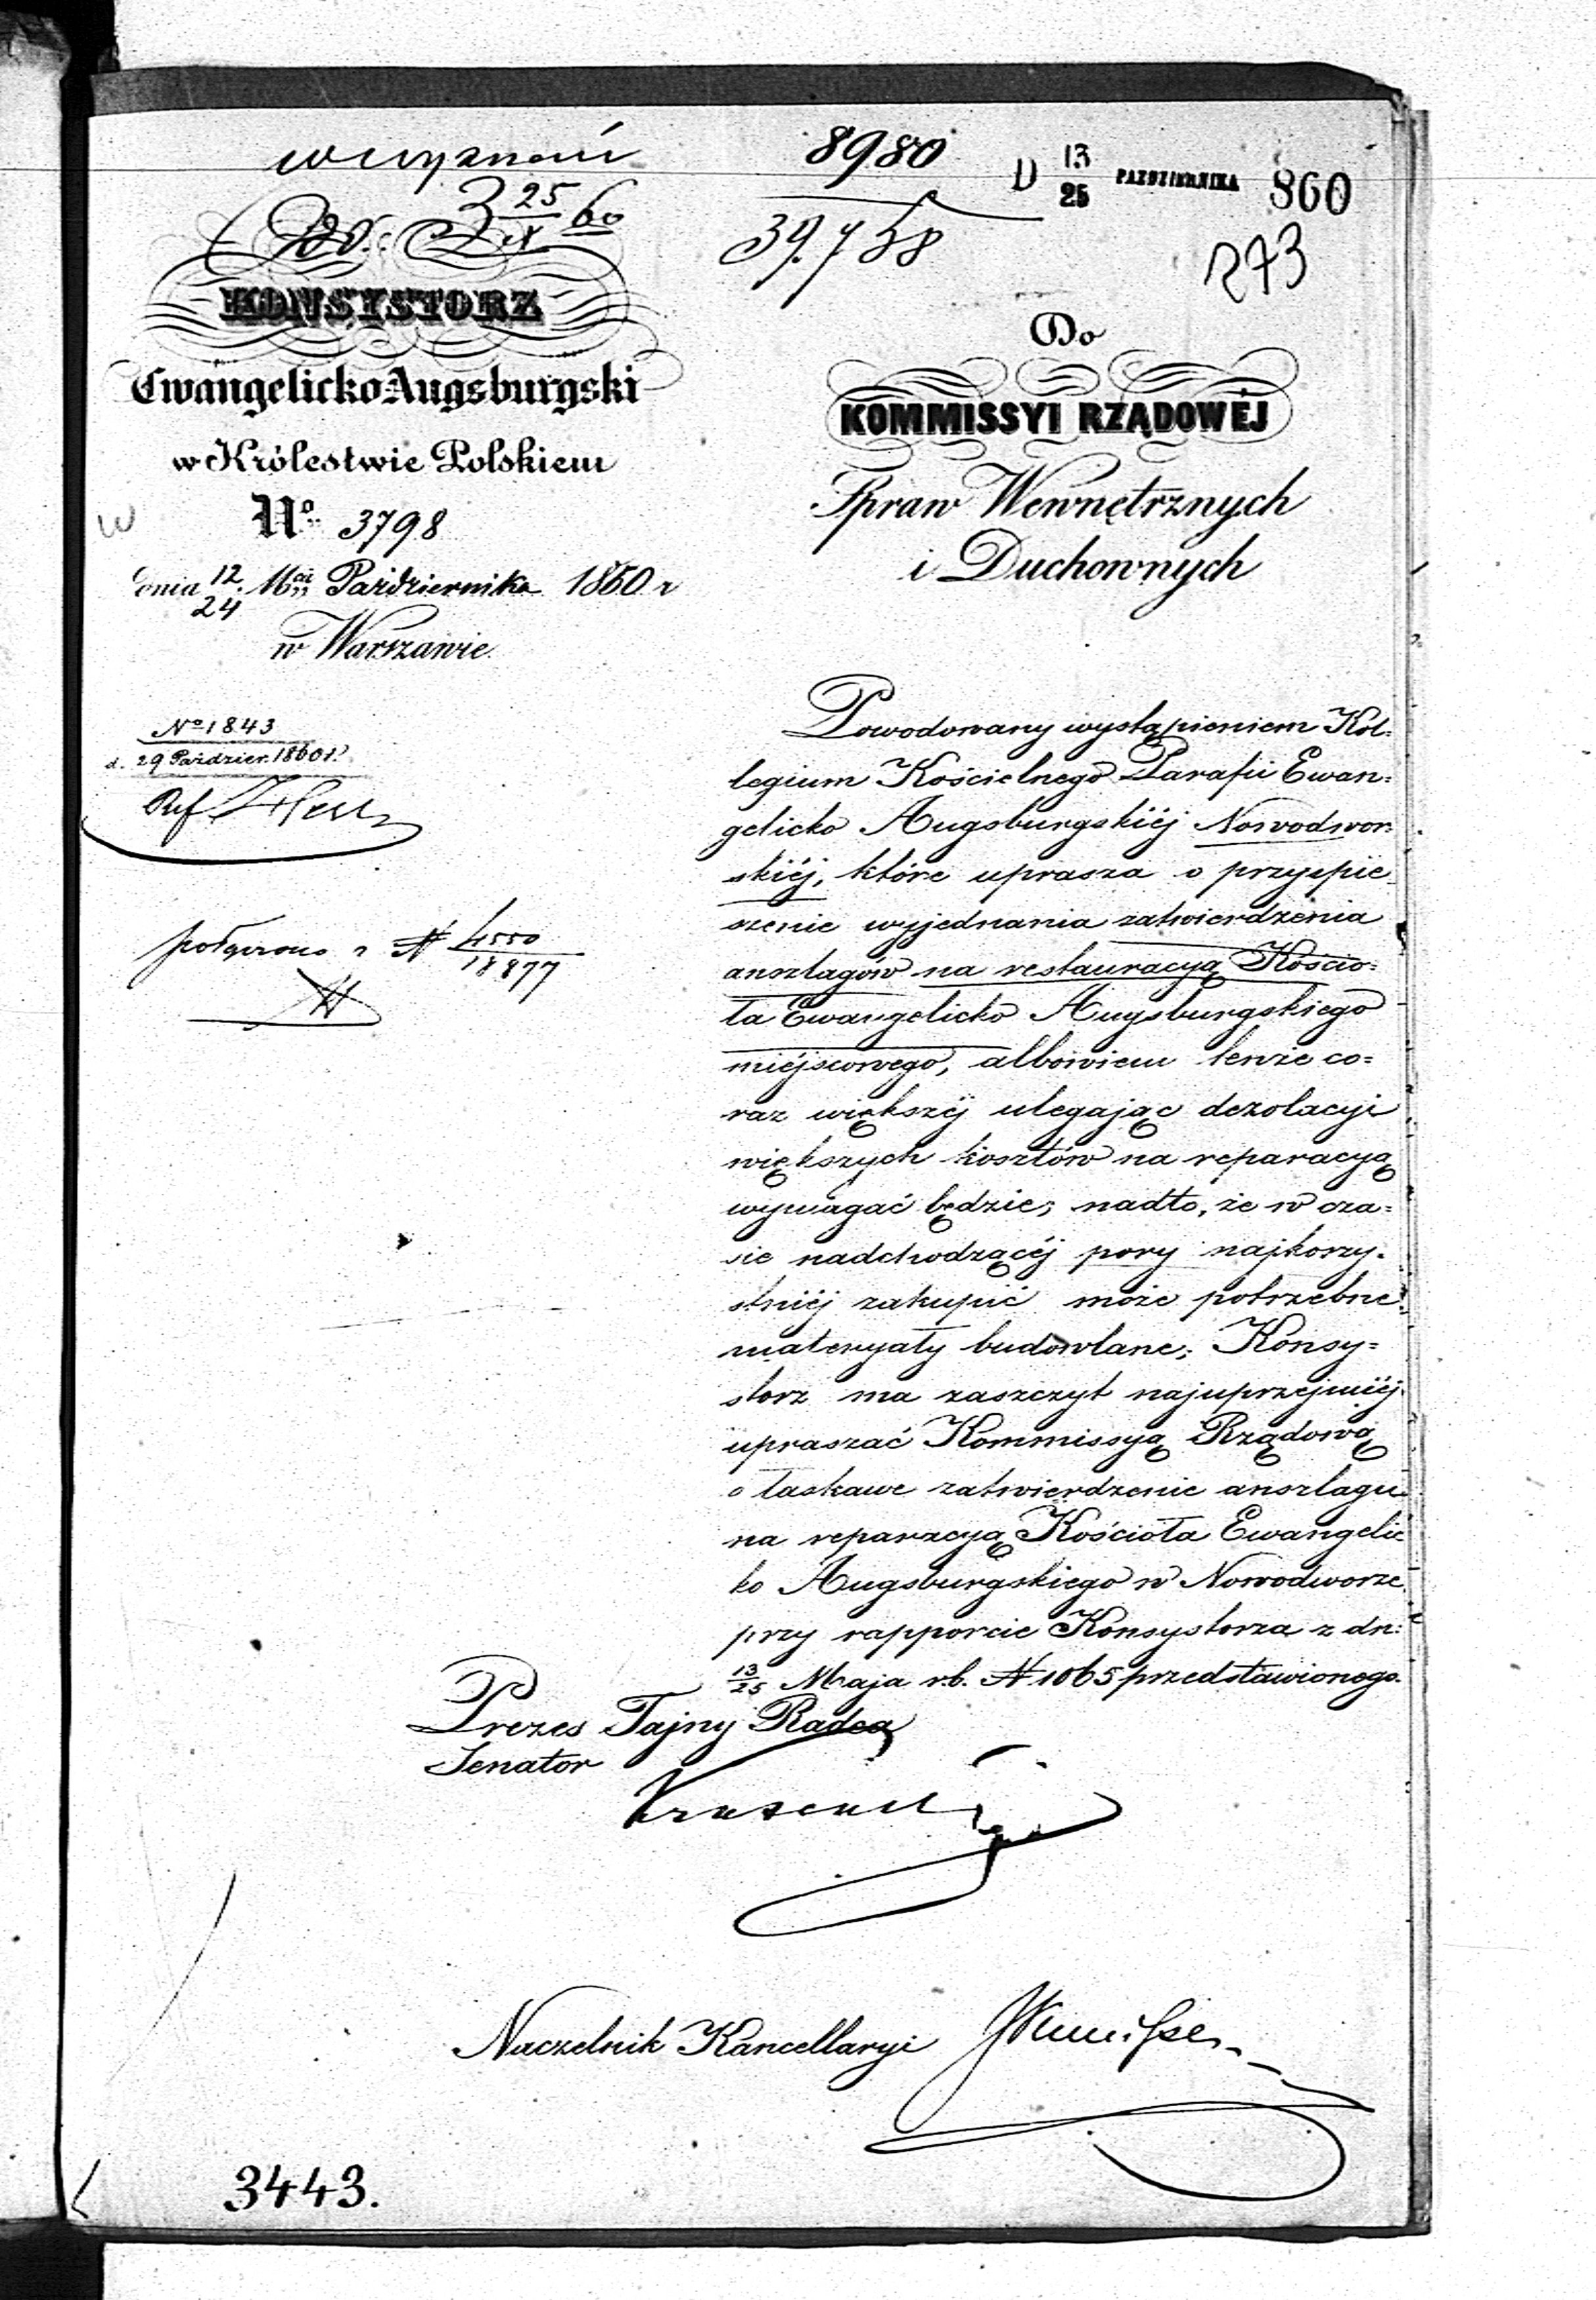 wyznań
8980
39.758
D 13/25 PAZDZIERNIKA 860
273
25/X 60
KONSYSTORZ
Ewangelicko Augsburgski
w Królestwie Polskiem
No 3798
dnia 12/24 Mca Października 1860 r
w Warszawie.
No 1843
d. 29 Paździer. 1860 r.
Ref
połączono z N 4550/18877
Do
KOMMISSYI RZĄDOWÉJ
Spraw Wewnętrznych
i Duchownych
Powodowany wystąpieniem Kol-
legium Kościelnego Parafii Ewan-
gelicko Augsburgskiéj Nowodwor-
skiéj, które uprasza o przyspie-
szenie wyjednania zatwierdzenia
anszlagów na restauracyą Kościo-
ła Ewangelicko Augsburgskiego
miéjscowego, albowiem tenże co-
raz większéj ulegając dezolacyi
większych kosztów na reparacyą
wymagać będzie; nadto, że w cza-
sie nadchodzącéj pory najkorzy-
stniéj zakupić może potrzebne
materyały budowlane; Konsy-
storz ma zaszczyt najuprzejmiéj
upraszać Kommissyą Rządową
o łaskawe zatwierdzenie anszlagu
na reparacyą Kościoła Ewangelic-
ko Augsburgskiego w Nowodworze
przy rapporcie Konsystorza z dn:
13/25 Maja r.b. N 1065 przedstawionego.
Prezes Tajny Radca
Senator
Naczelnik Kancellaryi
3443.